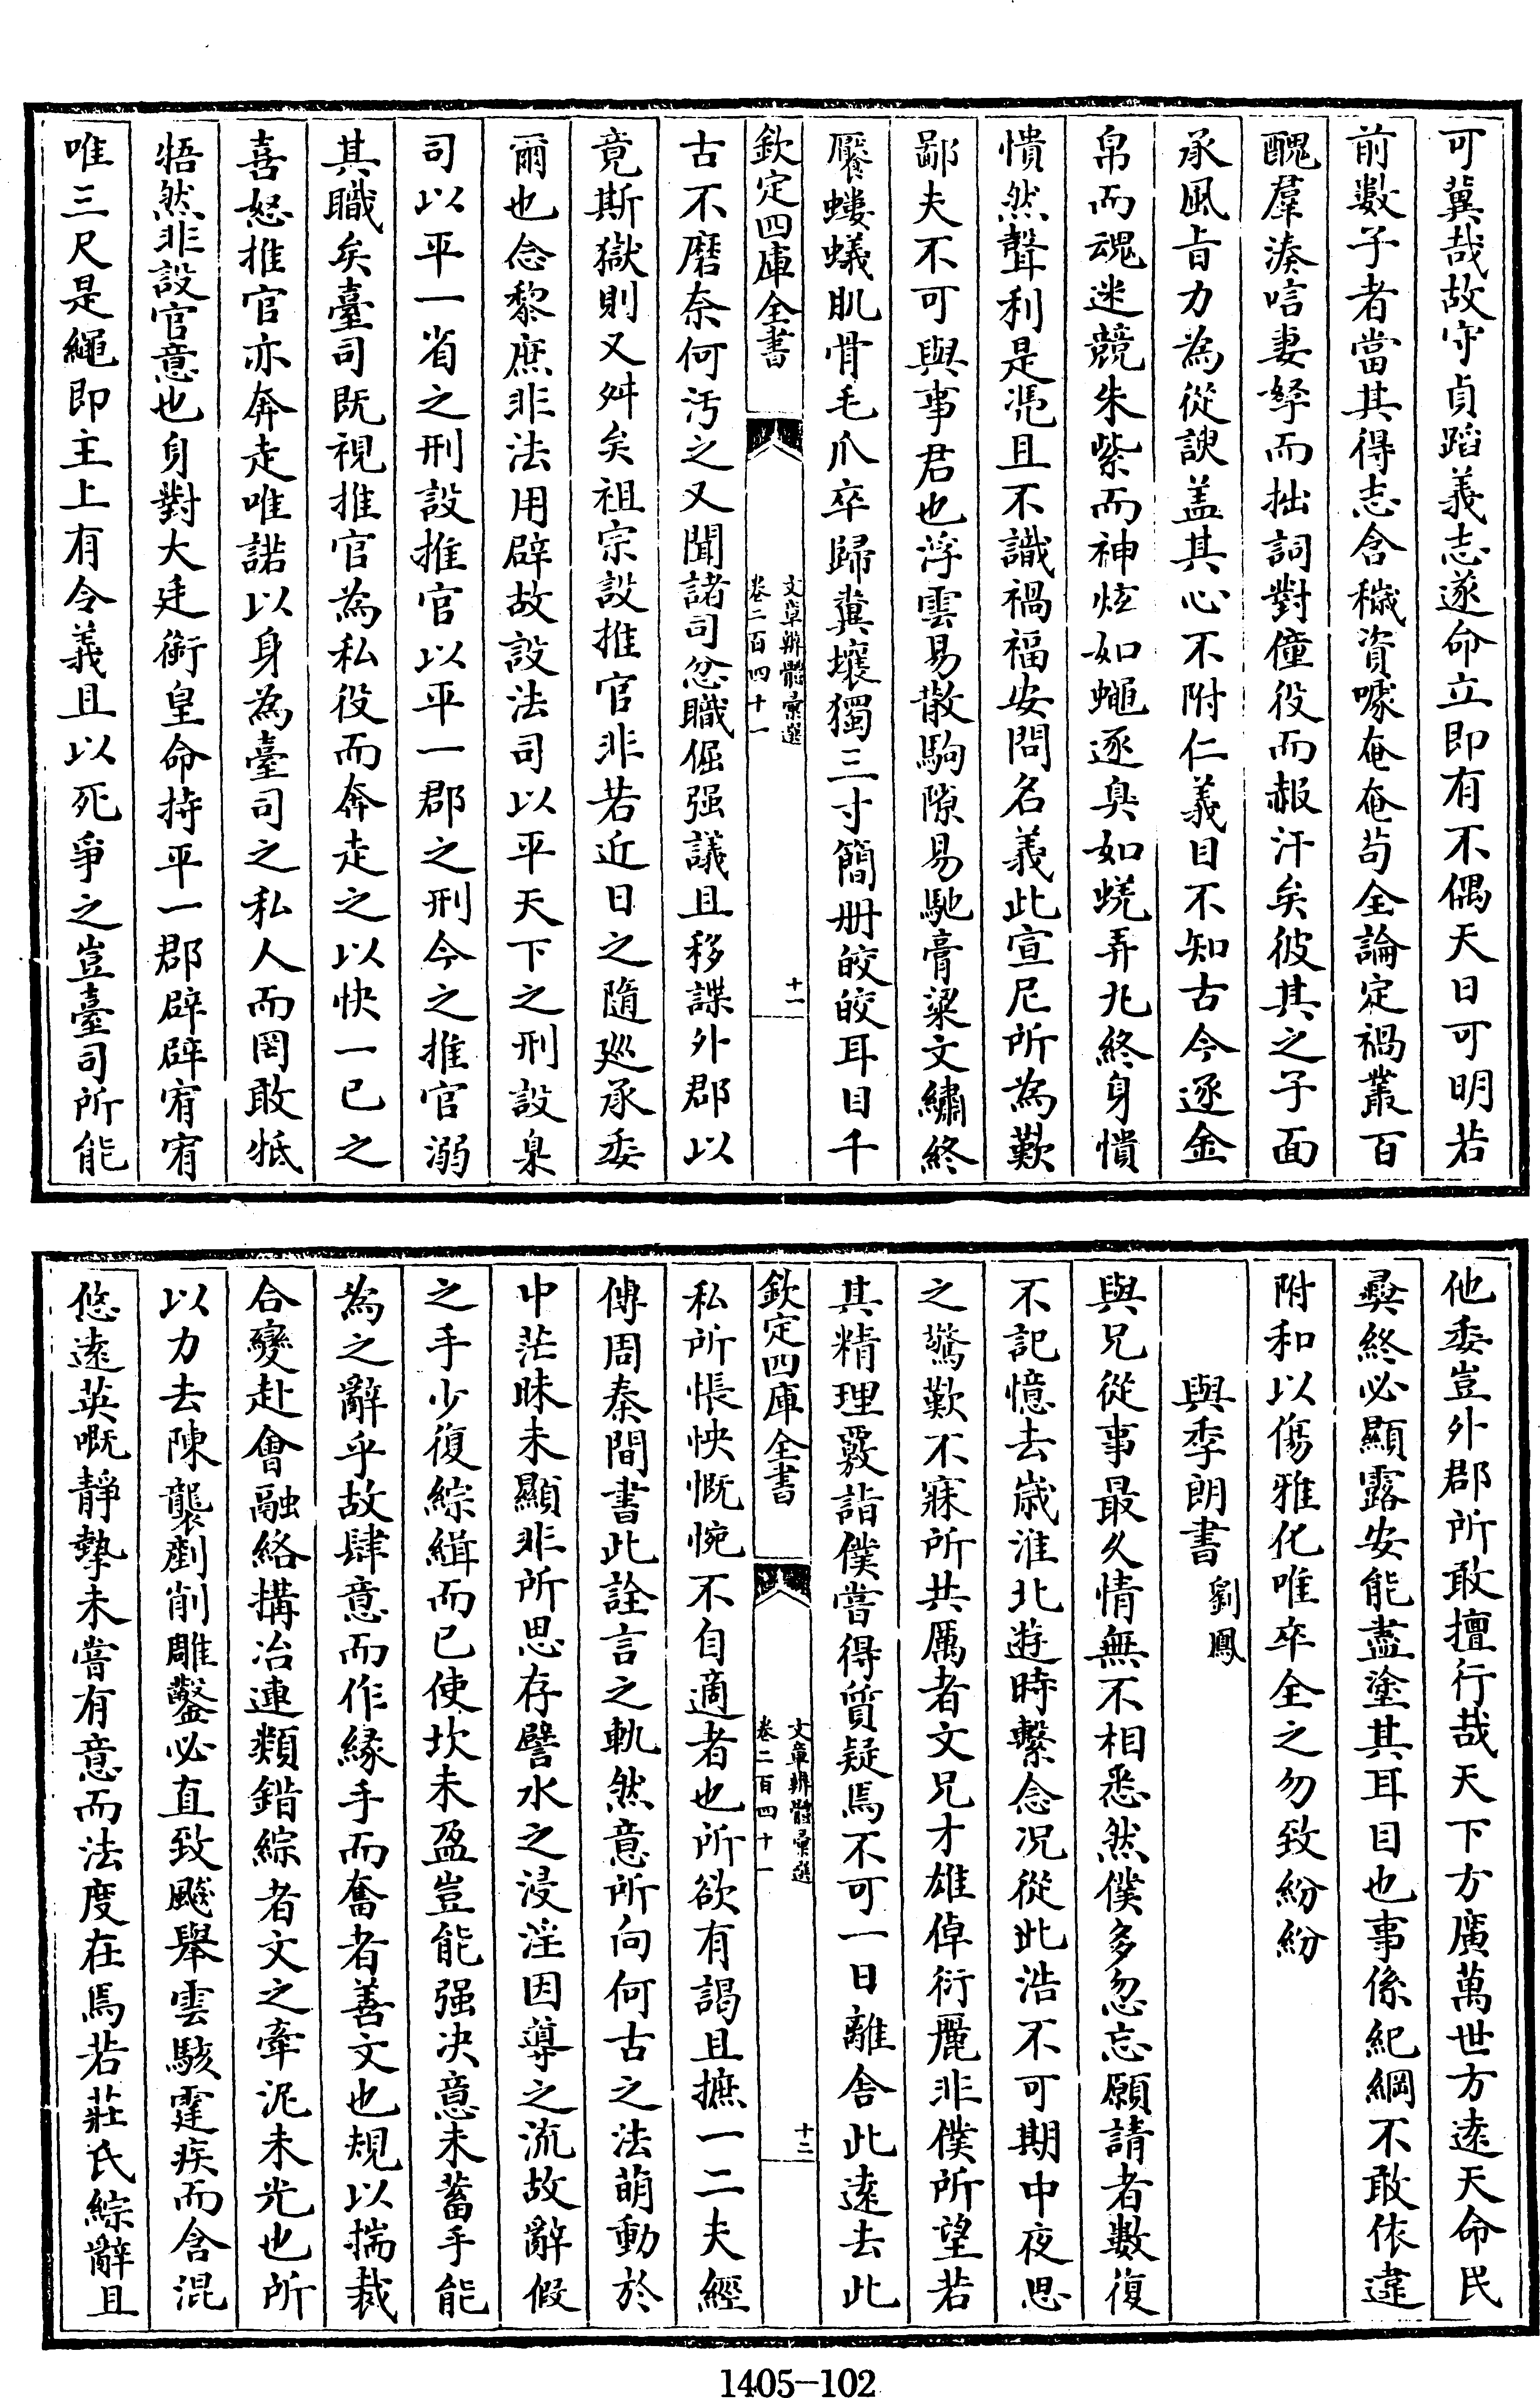 可冀哉故守貞蹈義志遂命立即有不偶天日可明若
前數子者當其得志含穢資喙奄奄苟全論定禍叢百
醜羣湊唁妻孥而拙詞對僮役而赧汗矣彼其之子面
承風旨力為從諛盖其心不附仁義目不知古今逐金
帛而魂迷競朱紫而神炫如蠅逐臭如蜣弄丸終身憒
憒然聲利是憑且不識禍福安問名義此宣尼所為歎
鄙夫不可與事君也浮雲易散駒隙易馳膏粱文繡終
饜螻蟻肌骨毛爪卒歸糞壤獨三寸簡册皎皎耳目千
欽定四庫全書
文章辨體彙選
卷二百四十一
十一
古不磨奈何汚之又聞諸司忿職倔强議且移諜外郡以
竟斯獄則又舛矣祖宗設推官非若近日之隨廵承委
爾也念黎庶非法用辟故設法司以平天下之刑設臬
司以平一省之刑設推官以平一郡之刑今之推官溺
其職矣臺司既視推官為私役而奔走之以快一已之
喜怒推官亦奔走唯諾以身為臺司之私人而罔敢牴
牾然非設官意也身對大廷銜皇命持平一郡辟辟宥宥
唯三尺是繩即主上有令義且以死爭之豈臺司所能
他委豈外郡所敢擅行哉天下方廣萬世方遠天命民
彞終必顯露安能盡塗其耳目也事係紀綱不敢依違
附和以傷雅化唯卒全之勿致紛紛
與季朗書 劉鳳
與兄從事最久情無不相悉然僕多忽忘願請者數復
不記憶去嵗淮北遊時繫念况從此浩不可期中夜思
之驚歎不寐所共厲者文兄才雄倬衍麗非僕所望若
其精理覈詣僕嘗得質疑焉不可一日離舍此遠去此
欽定四庫全書
文章辨體彙選
卷二百四十一
十二
私所悵怏慨惋不自適者也所欲有謁且摭一二夫經
傳周秦間書此詮言之軌然意所向何古之法萌動於
中茫昧未顯非所思存譬水之浸淫因導之流故辭假
之手少復綜緝而已使坎未盈豈能强决意未蓄手能
為之辭乎故肆意而作緣手而奮者善文也規以揣裁
合變赴會融絡搆冶連類錯綜者文之牽泥未光也所
以力去陳襲劌削雕鑿必直致飈舉雲駭霆疾而含混
悠遠英嘅靜摯未嘗有意而法度在焉若莊氏綜辭且
1405-102